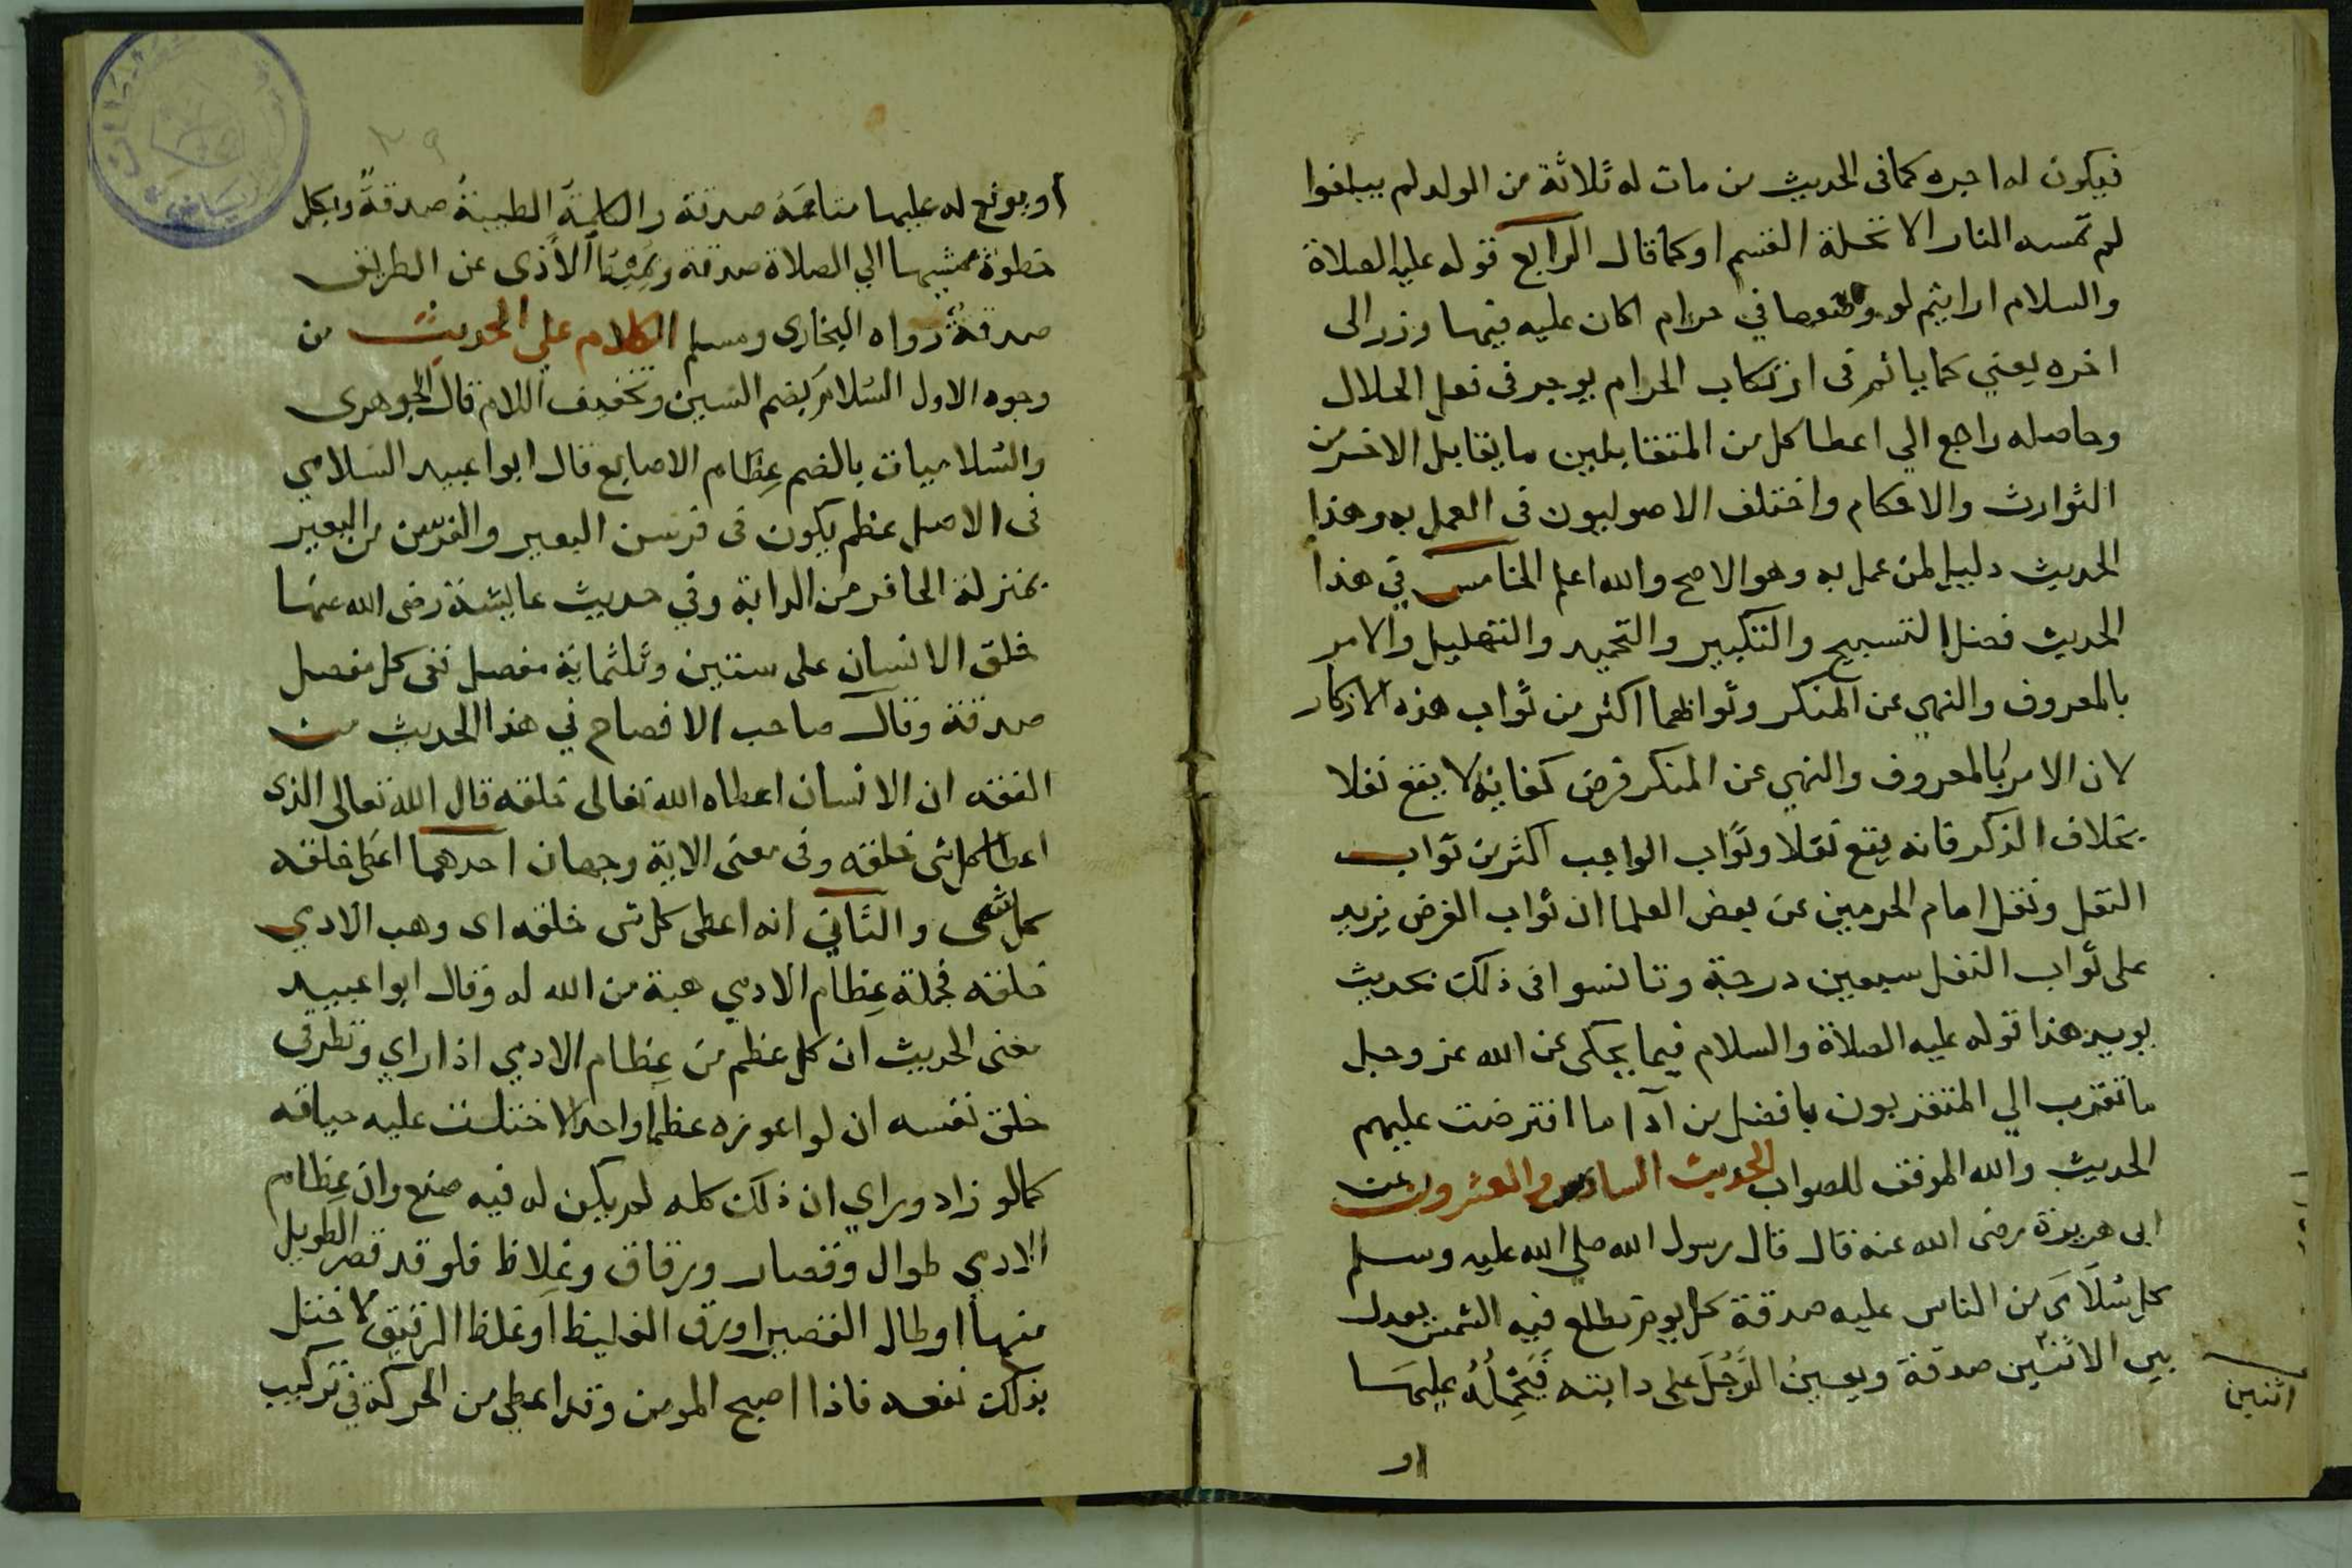 فيكون له اجره كما فى الحديث من مات له ثلاثة من الولد لم يبلغوا
لم تمسه النار الا تحلة القسم او كما قال الرابع قوله عليه الصلاة
والسلام ارايتم لو وضعها في حرام اكان عليه فيها وزر الى
اخره يعني كما ياثم فى ارتكاب الحرام يوجر فى فعل الحلال
وحاصله راجع الي اعطا كل من المتقابلين ما يقابل الاخر من
الثوارث والاحكام واختلف الاصوليون فى العمل به وهذا
الحديث دليل لمن عمل به وهو الاصح والله اعلم الخامس في هذا
الحديث فضل التسبيح والتكبير والتحميد والتهليل والامر
بالمعروف والنهي عن المنكر وثوابهما اكثر من ثواب هذه الاذكار
لان الامر بالمعروف والنهي عن المنكر فرض كفاية لا يقع نفلا
بخلاف الذكر فانه يقع نفلا وثواب الواجب اكثر من ثواب
النفل ونقل امام الحرمين عن بعض العلما ان ثواب الفرض يزيد
على ثواب النفل سبعين درجة وتانسوا فى ذلك بحديث
يويد هذا قوله عليه الصلاة والسلام فيما يحكى عن الله عز وجل
ما تقرب الي المتقربون بافضل من آدا ما افترضت عليهم
الحديث والله الموفق للصواب الحديث السادس والعشرون عن
ابى هريرة رضى الله عنه قال قال رسول الله صلي الله عليه وسلم
كل سُلَامَى من الناس عليه صدقة كل يوم تطلع فيه الشمس يعدل
بين الاثنين صدقة ويعين الرَّجُلَ على دابته فَيَحْمِلُهُ عليهَا
اثنين
او
٢٩
او يرفع له عليها متاعَهُ صدقة والكلمة الطيبة صدقةٌ وبكل
خطوة يمشيها الي الصلاة صدقة ويُمِيط الأذى عن الطريق
صدقةٌ رواه البخارى ومسلم الكلام علي الحديث من
وجوه الاول السُلامَى بضم السين وتخفيف اللام قال الجوهرى
والسُلاميات بالضم عِظام الاصابع قال ابوا عبيد السلامي
فى الاصل عظم يكون فى فرسن البعير والفرسن من البعير
بمنزلة الحافر من الدابة وفي حديث عايشة رضى الله عنها
خلق الانسان على ستين وثلثماية مفصل ففى كل مفصل
صدقة وقال صاحب الافصاح في هذا الحديث من
الفقه ان الانسان اعطاه الله تعالى خلقه قال الله تعالى الذى
اعطا كل شى خلقه وفى معنى الاية وجهان احدهما اعطى خلقه
كل شى والثاني انه اعطى كل شى خلقه اى وهب الادمي
خلقه فجملة عِظام الادمي هبة من الله له وقال ابوا عبيد
معنى الحديث ان كل عظم من عِظام الادمي اذا راي ونظر فى
خلق نفسه ان لو اعوزه عظما واحدا لاختلت عليه حياته
كما لو زاد وراي ان ذلك كله لم يكن له فيه صنع وان عِظام
الادمي طوال وقصار ورقاق وغِلاظ فلو قد قصر الطويل
منها او طال القصير او رق الغليظ او غلظ الرقيق لاختل
بذلك نفعه فاذا اصبح المومن وقد اعطي من الحركة في تركيب